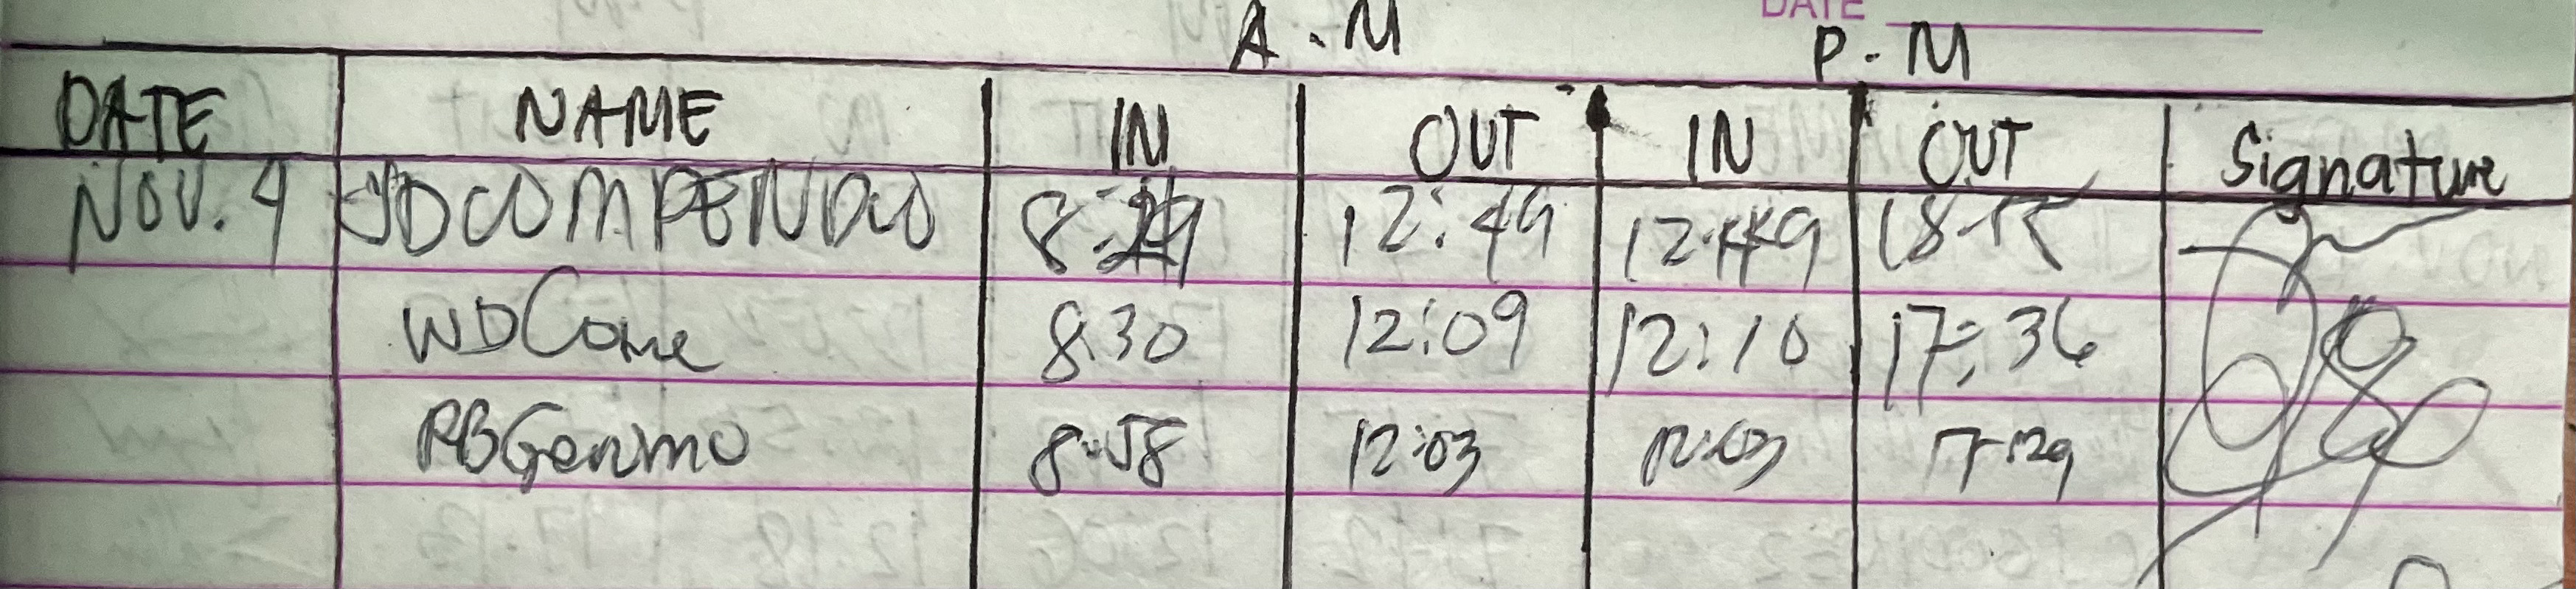 DATE
A.M P.M
DATE NAME IN OUT IN OUT Signature
NOV. 4 JDCOMPENDIO 12:49 12:49
WDCone 8:30 12:09 12:10 17:36
RBGenmo 8:58 12:03 12:03 17:29